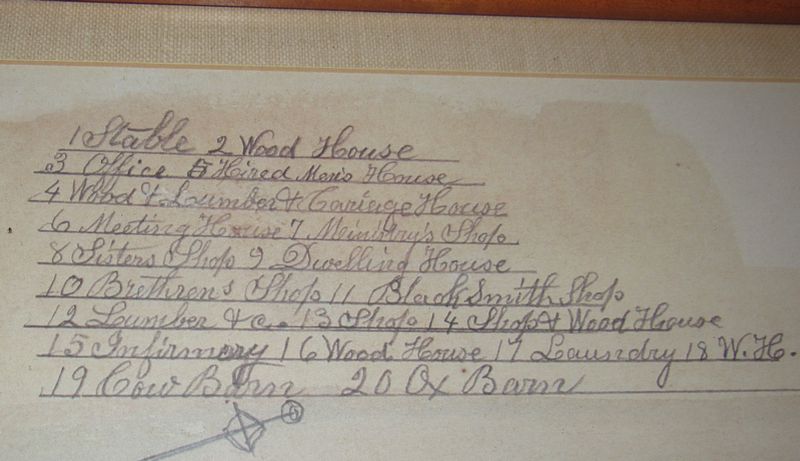 1 Stable 2 Wood House
3 Office 5 Hired Men's House
4 Wood & Loumber & Cariege House
6 Meeting House 7 Ministry's Shop
8 Sisters Shop 9 Dwelling House
10 Brethrens Shop 11 Black Smith Shop
12 Loumber &c. 13 Shop 14 Shop & Wood House
15 Infirmery 16 Wood House 17 Laundry 18 W. H.
19 Cow Barn 20 Ox Barn